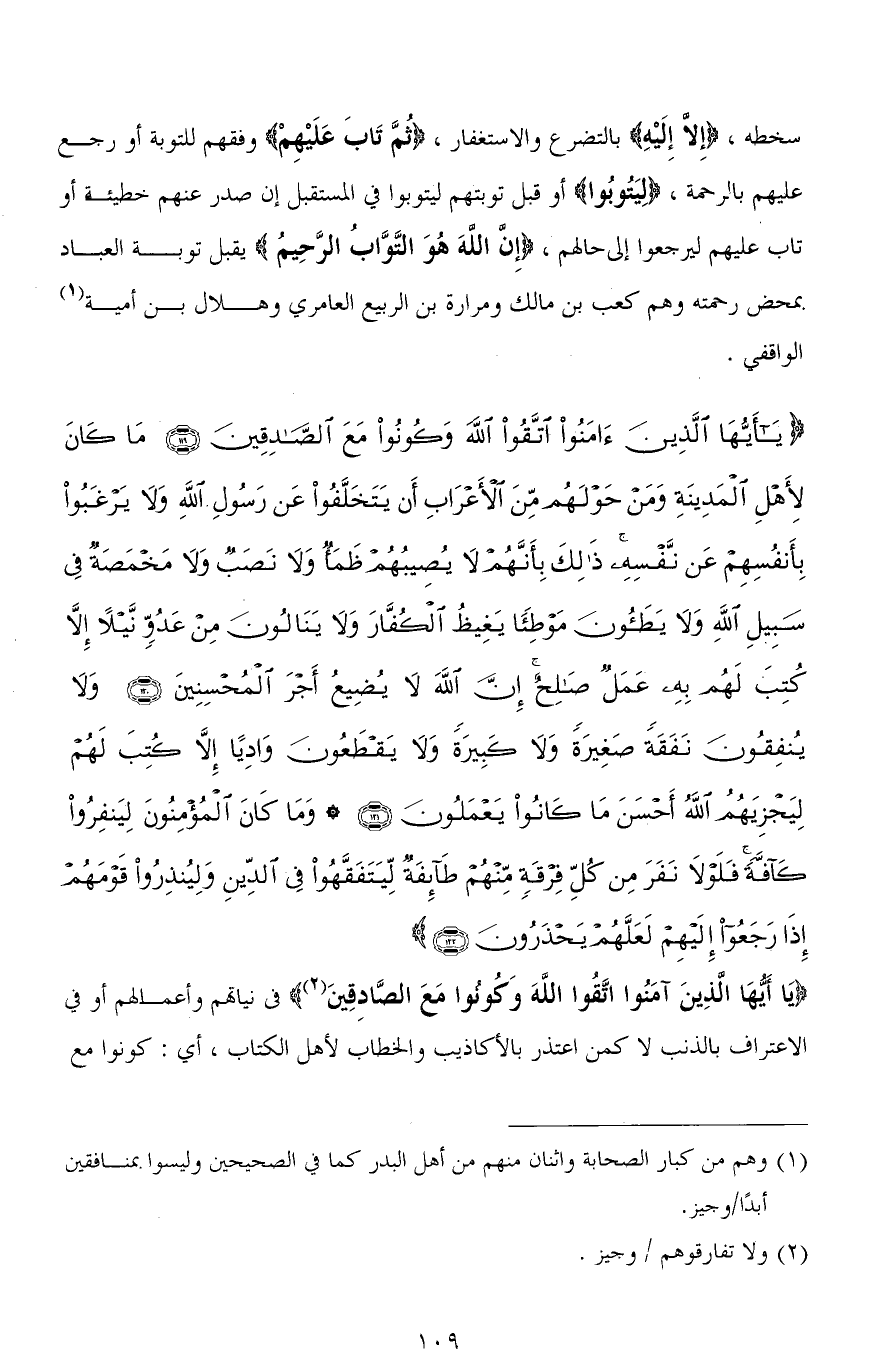 سخطه ، ﴿إِلاَّ إِلَيْهِ﴾ بالتضرع والاستغفار ، ﴿ثُمَّ تَابَ عَلَيْهِمْ﴾ وفقهم للتوبة أو رجـــع
عليهم بالرحمة ، ﴿لِيَتُوبُوا﴾ أو قبل توبتهم ليتوبوا في المستقبل إن صدر عنهم خطيئـة أو
تاب عليهم ليرجعوا إلى حالهم ، ﴿إِنَّ اللَّهَ هُوَ التَّوَّابُ الرَّحِيمُ ﴾ يقبل توبـــــة العبـــاد
بمحض رحمته وهم كعب بن مالك ومرارة بن الربيع العامري وهـــلال بـــن أميـــة(١)
الواقفي .
﴿ يَـٰٓأَيُّهَا ٱلَّذِينَ ءَامَنُوا۟ ٱتَّقُوا۟ ٱللَّهَ وَكُونُوا۟ مَعَ ٱلصَّـٰدِقِينَ ١١٩ مَا كَانَ
لِأَهْلِ ٱلْمَدِينَةِ وَمَنْ حَوْلَهُم مِّنَ ٱلْأَعْرَابِ أَن يَتَخَلَّفُوا۟ عَن رَسُولِ ٱللَّهِ وَلَا يَرْغَبُوا۟
بِأَنفُسِهِمْ عَن نَّفْسِهِۦۚ ذَٰلِكَ بِأَنَّهُمْ لَا يُصِيبُهُمْ ظَمَأٌ وَلَا نَصَبٌ وَلَا مَخْمَصَةٌ فِى
سَبِيلِ ٱللَّهِ وَلَا يَطَـُٔونَ مَوْطِئًا يَغِيظُ ٱلْكُفَّارَ وَلَا يَنَالُونَ مِنْ عَدُوٍّ نَّيْلًا إِلَّا
كُتِبَ لَهُم بِهِۦ عَمَلٌ صَـٰلِحٌۚ إِنَّ ٱللَّهَ لَا يُضِيعُ أَجْرَ ٱلْمُحْسِنِينَ ١٢٠ وَلَا
يُنفِقُونَ نَفَقَةً صَغِيرَةً وَلَا كَبِيرَةً وَلَا يَقْطَعُونَ وَادِيًا إِلَّا كُتِبَ لَهُمْ
لِيَجْزِيَهُمُ ٱللَّهُ أَحْسَنَ مَا كَانُوا۟ يَعْمَلُونَ ١٢١ ۞ وَمَا كَانَ ٱلْمُؤْمِنُونَ لِيَنفِرُوا۟
كَآفَّةًۚ فَلَوْلَا نَفَرَ مِن كُلِّ فِرْقَةٍ مِّنْهُمْ طَآئِفَةٌ لِّيَتَفَقَّهُوا۟ فِى ٱلدِّينِ وَلِيُنذِرُوا۟ قَوْمَهُمْ
إِذَا رَجَعُوٓا۟ إِلَيْهِمْ لَعَلَّهُمْ يَحْذَرُونَ ١٢٢ ﴾
﴿يَا أَيُّهَا الَّذِينَ آمَنُوا اتَّقُوا اللَّهَ وَكُونُوا مَعَ الصَّادِقِينَ(٢)﴾ في نياتهم وأعمـــالهم أو في
الاعتراف بالذنب لا كمن اعتذر بالأكاذيب والخطاب لأهل الكتاب ، أي : كونوا مع
(١) وهم من كبار الصحابة واثنان منهم من أهل البدر كما في الصحيحين وليسوا بمنـــافقين
أبدًا/وجيز.
(٢) ولا تفارقوهم / وجيز .
١٠٩